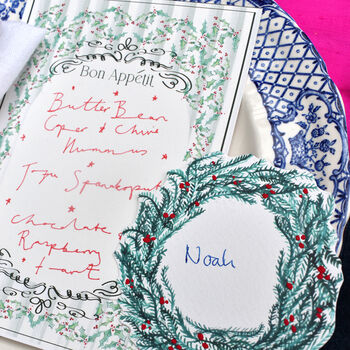 Bon Appétit
Butter Bean
Caper + Chive
Hummus
Tofu Spanakopit
Chocolate
Raspberry
tart
Noah